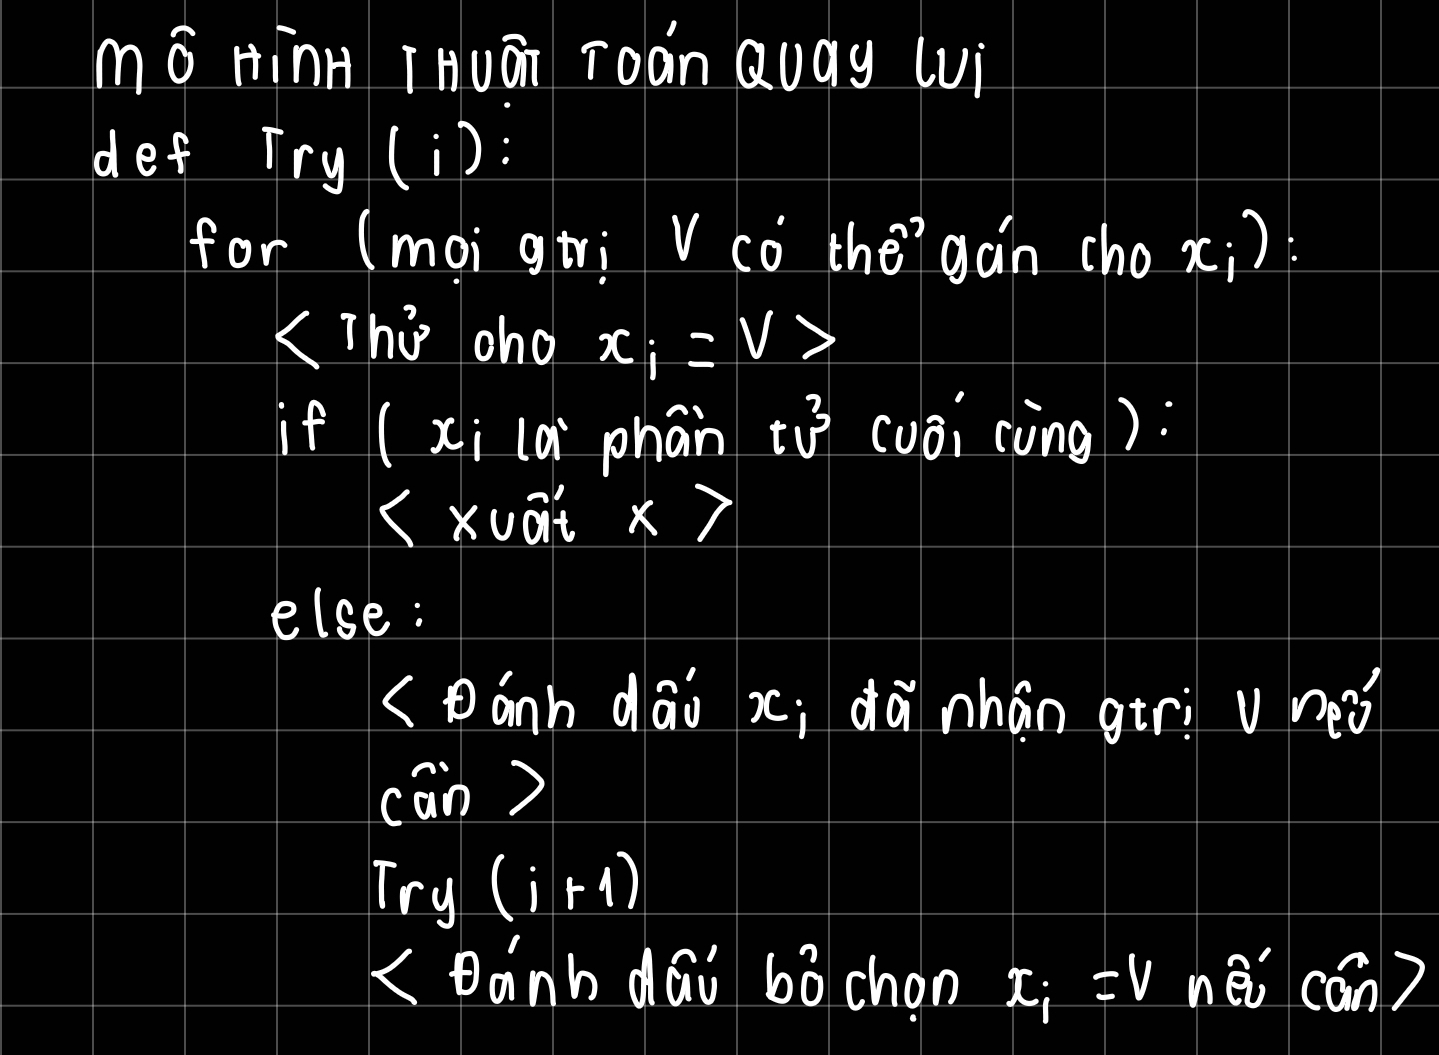 MÔ HÌNH THUẬT TOÁN QUAY LUI
def Try (i):
for (mọi gtrị V có thể gán cho xi):
< Thử cho xi = V >
if ( xi là phần tử cuối cùng ):
< xuất x >
else:
< Đánh dấu xi đã nhận gtrị V nếu
cần >
Try (i+1)
< Đánh dấu bỏ chọn xi = V nếu cần >